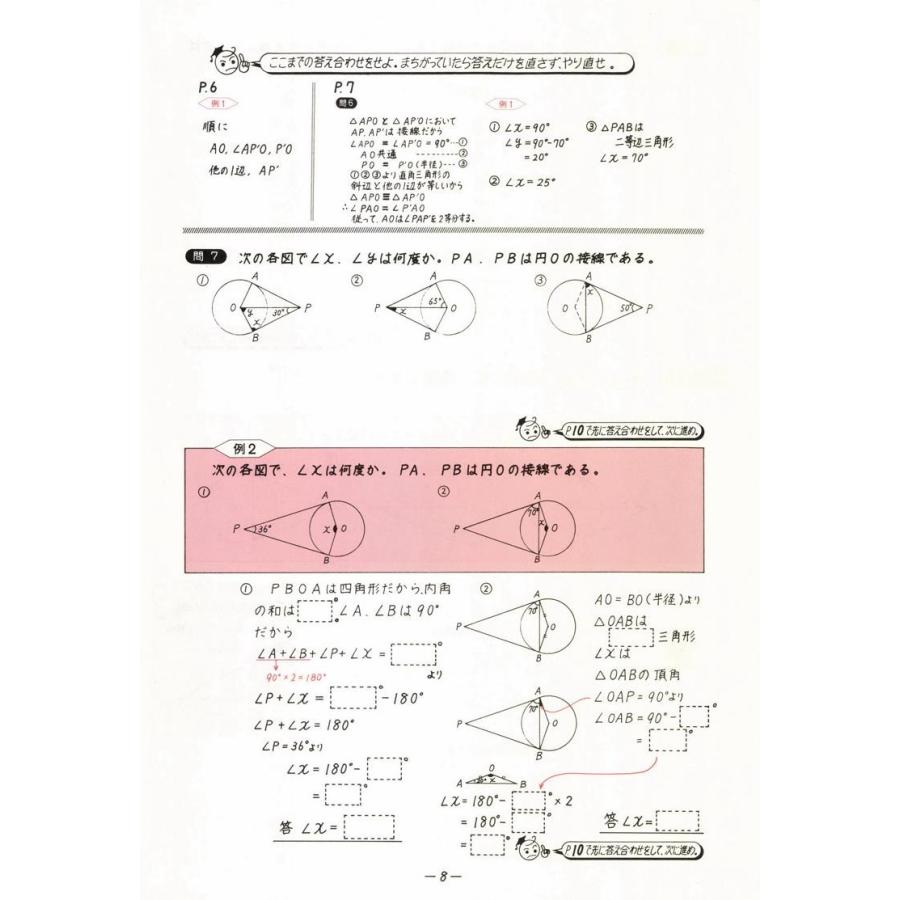 ここまでの答え合わせをせよ。まちがっていたら答えだけを直さず、やり直せ。
P.6
例1
順に
AO, ∠AP'O, P'O
他の1辺, AP'
P.7
問6
△APOと△AP'Oにおいて
AP, AP'は接線だから
∠APO = ∠AP'O = 90°…①
AO共通 ---------②
PO = P'O (半径)---③
①②③より直角三角形の
斜辺と他の1辺が等しいから
△APO≡△AP'O
∴∠PAO=∠P'AO
従って、AOは∠PAP'を2等分する。
例1
① ∠x=90°
∠y=90°-70°
=20°
② ∠x=25°
③ △PABは
二等辺三角形
∠x=70°
問7 次の各図で∠x、∠yは何度か。PA、PBは円Oの接線である。
① A O y 30° P x B
② A P x 65° O B
③ A x O 50° P B
P10で先に答え合わせをして、次に進め。
例2
次の各図で、∠xは何度か。PA、PBは円Oの接線である。
① A P 36° x O B
② A 70° P x O B
① PBOAは四角形だから、内角
の和は ° ∠A、∠Bは90°
だから
∠A+∠B+∠P+∠x= °
90°×2=180° より
∠P+∠x= °-180°
∠P+∠x=180°
∠P=36°より
∠x=180°- °
= °
答 ∠x=
② A 70° P O B
AO=BO(半径)より
△OABは
三角形
∠xは
△OABの頂角
A 70° P O B
∠OAP=90°より
∠OAB=90°- °
= °
O A x B
∠x=180°- °×2
=180°- °
= °
答 ∠x=
P10で先に答え合わせをして、次に進め。
—8—